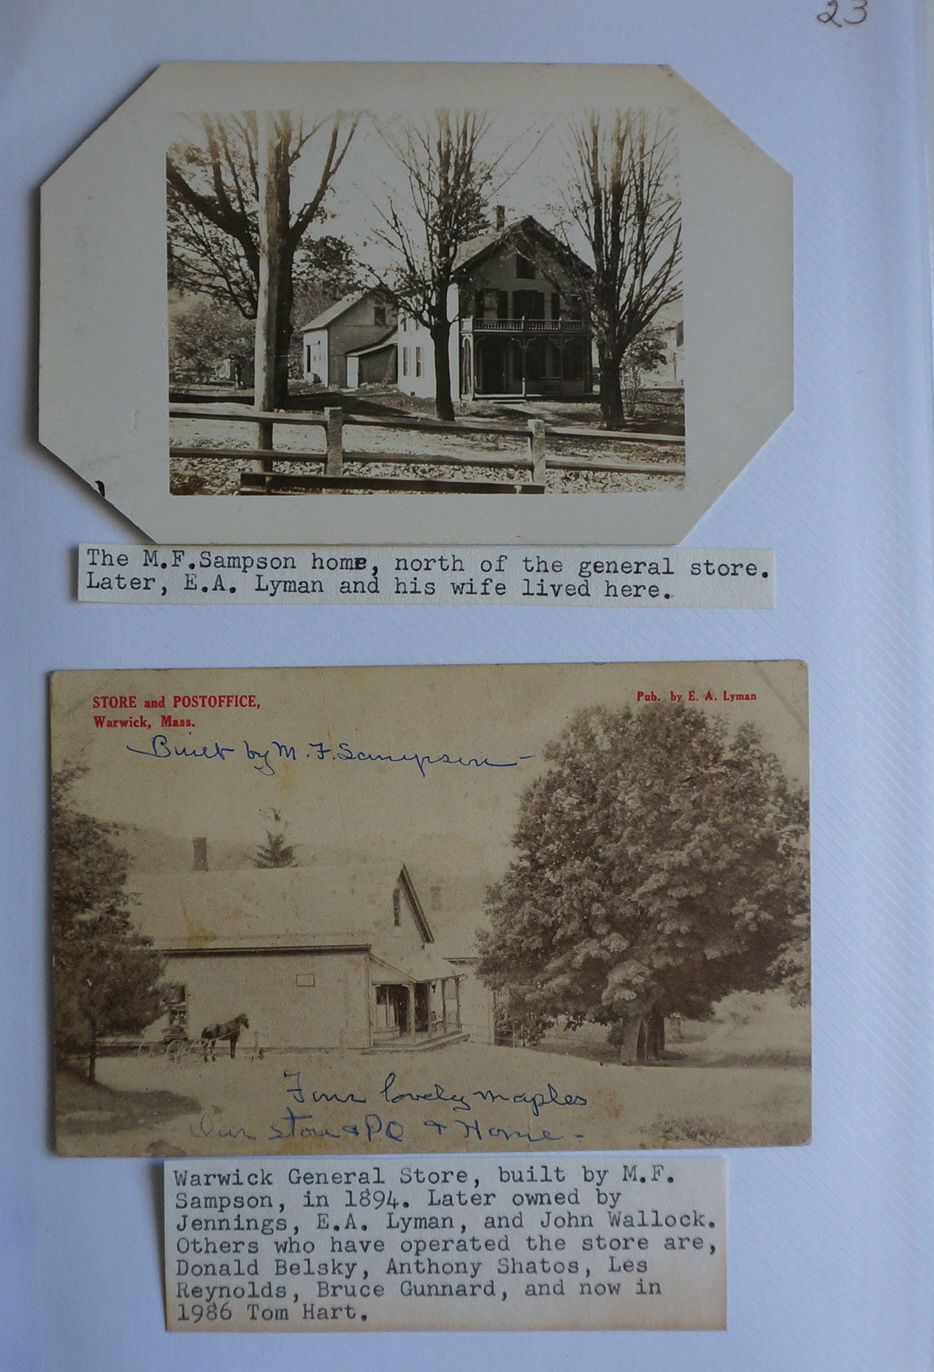 23
The M.F.Sampson home, north of the general store.
Later, E.A. Lyman and his wife lived here.
STORE and POSTOFFICE,
Warwick, Mass.
Pub. by E. A. Lyman
Built by M. F. Sampson -
Four lovely maples
Our store & PO & Home -
Warwick General Store, built by M.F.
Sampson, in 1894. Later owned by
Jennings, E.A. Lyman, and John Wallock.
Others who have operated the store are,
Donald Belsky, Anthony Shatos, Les
Reynolds, Bruce Gunnard, and now in
1986 Tom Hart.